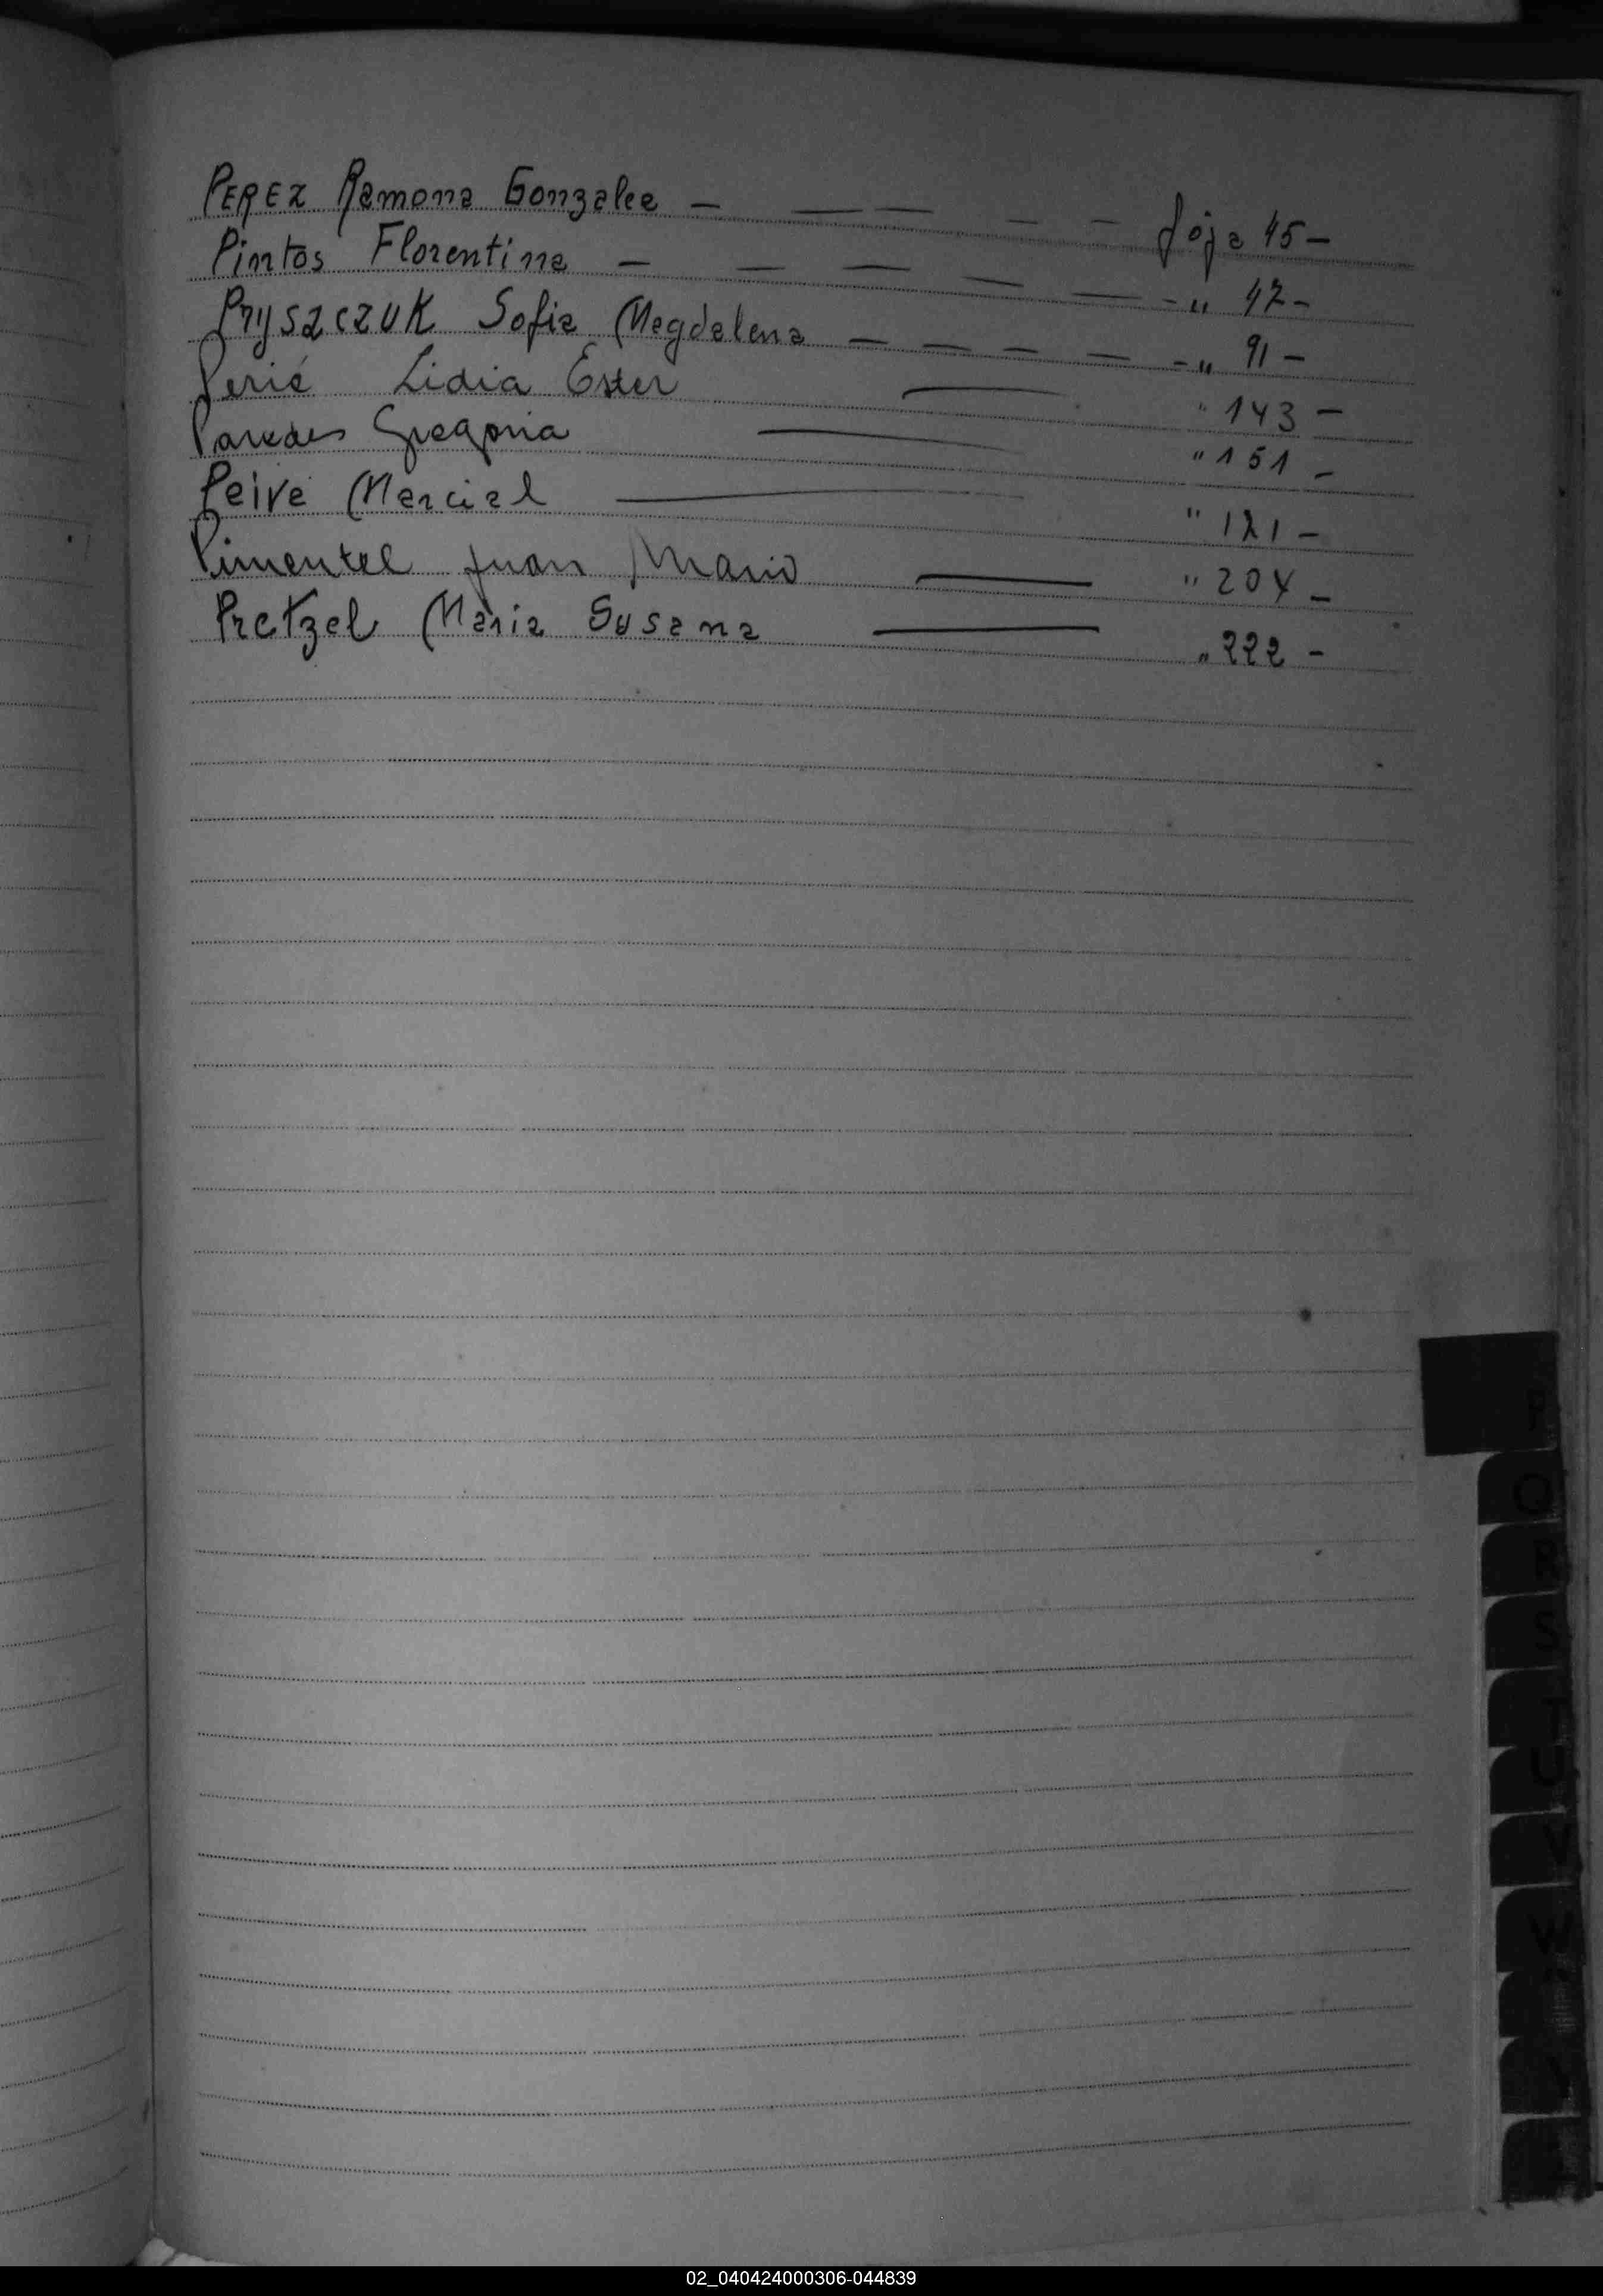 PEREZ Ramona Gonzalea — — — — — foja 45 —
Pintos Florentina — — — — — - " 47 -
Pryszczuk Sofia Magdalena — — — — - " 91 -
Perié Lidia Ester — " 143 —
Paredes Gregoria — " 151 —
Peive Marcial — " 121 —
Pimentel Juan Mario — " 204 —
Pretzel Maria Susana — " 222 -
P
Q
R
S
T
U
V
W
Y
02_040424000306-044839